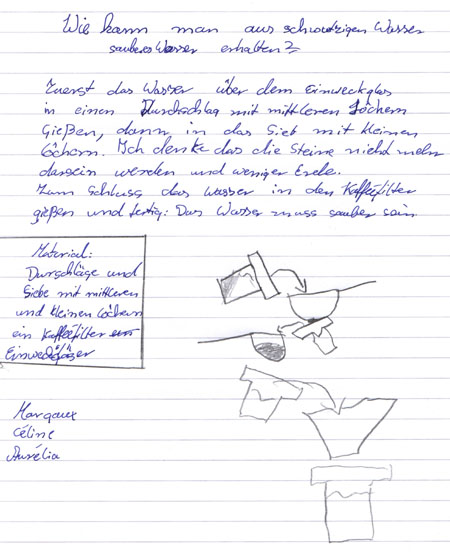 Wie kann man aus schmutzigen Wasser
sauberes Wasser erhalten?
Zuerst das Wasser über dem Einweckglas
in einen Durchschlag mit mittleren Löchern
Gießen, dann in das Sieb mit kleinen
Löchern. Ich denke das die Steine nicht mehr
dasein werden und weniger Erde.
Zum Schluss das Wasser in den Kaffeefilter
gießen und fertig: Das Wasser muss sauber sein
Material:
Durschläge und
Siebe mit mittleren
und kleinen Löchern
ein Kaffeefilter
Einweckgläser
Margaux
Céline
Aurélia